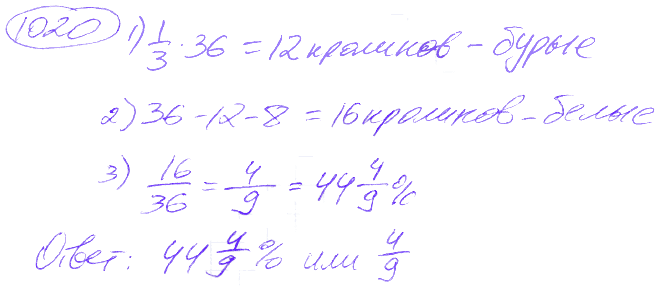 1020 1) 1/3 · 36 = 12 кроликов - бурые
2) 36 - 12 - 8 = 16 кроликов - белые
3) 16/36 = 4/9 = 44 4/9 %
Ответ: 44 4/9 % или 4/9